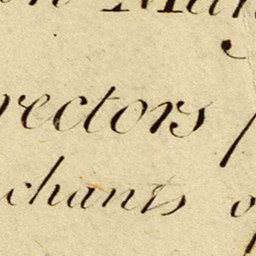 rectors
chants o